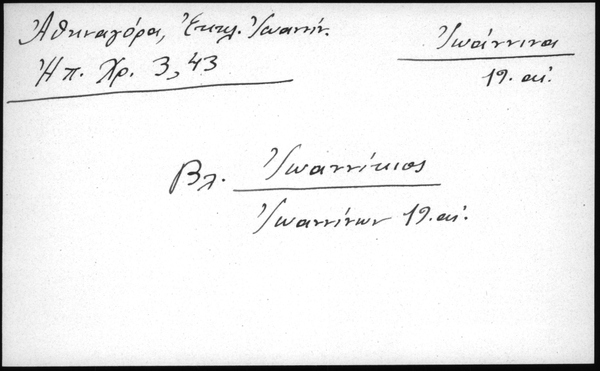 Ἀθηναγόρα, Ἐκκλ. Ἰωανν́ν.
Ἠπ. Χρ. 3, 43
Ἰωάννινα
19. αἰ.
Βλ. Ἰωαννίκιος
Ἰωαννίνων 19. αἰ.